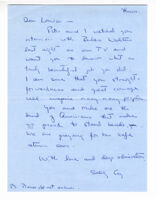 Dear Louisa —
Pete and I watched your
interview with Barbara Walters
last night on our TV and
want you to know what a
truly beautiful job you did.
I am sure that your straight-
forwardness and great courage
will inspire many many people.
You are and make me the
kind of Americans that makes
us proud to stand beside you.
We are praying for the safe
return soon.
With love and deep admiration
Sally
P.S. Please do not answer.